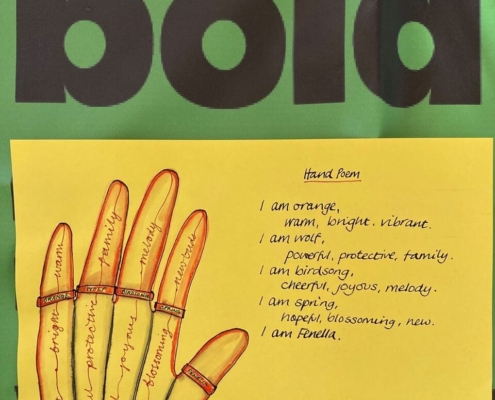 bold
Hand Poem
I am orange,
warm, bright. vibrant.
I am wolf,
powerful, protective, family.
I am birdsong,
cheerful, joyous, melody.
I am spring,
hopeful, blossoming, new.
I am Fenella.
bright warm
protective family
joyous melody
blossoming
ORANGE
WOLF
BIRDSONG
SPRING
FENELLA